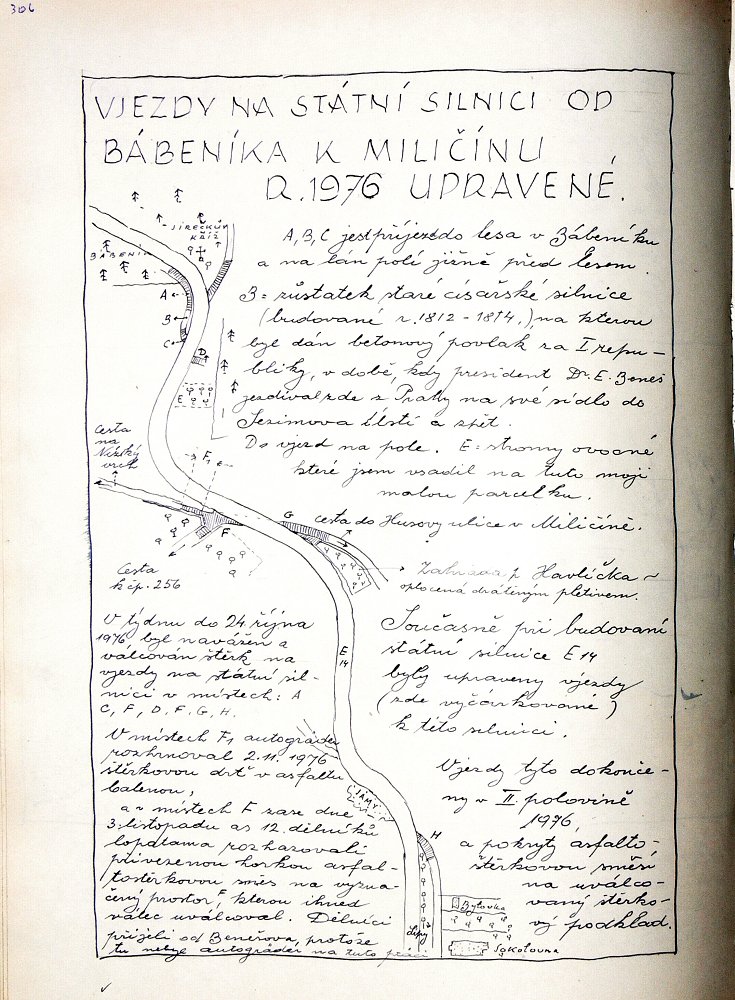 306
VJEZDY NA STÁTNÍ SILNICI OD
BÁBENÍKA K MILIČÍNU
R. 1976 UPRAVENÉ.
JIRECKŮV
KŘÍŽ
BÁBENÍK
A
B
C
D
E
A, B, C jest příjezd do lesa v Bábeníku
a na lán polí jižně před lesem.
B = zůstatek staré císařské silnice
(budované r. 1812 - 1814,) na kterou
byl dán betonový povlak za I repu-
bliky, v době, kdy president Dr. E. Beneš
jezdíval zde z Prahy na své sídlo do
Sezimova Ústí a zpět.
D = vjezd na pole. E = stromy ovocné
které jsem vsadil na tuto moji
malou parcelku.
Cesta
na
Nízký
vrch
F₁
F
G
cesta do Husovy ulice v Miličíně.
Cesta
k čp. 256
Zahrada p. Havlíčka
oplocená drátěným pletivem.
V týdnu do 24. října
1976 byl navážen a
válcován štěrk na
vjezdy na státní sil-
nici v místech: A
C, F, D. F. G, H.
E
14
Současně při budovaní
státní silnice E 14
byly upraveny vjezdy
(zde vyčárkované)
k této silnici.
V místech F₁ autogrèder
rozhrnoval 2. 11. 1976
štěrkovou drť v asfaltu
balenou,
a v místech F zase dne
3. listopadu as 12. dělníků
lopatama rozhazovali
přivezenou horkou asfal-
toštěrkovou směs na vyzna-
čený prostor F, kterou ihned
válec uválcoval. Dělníci
přijeli od Benešova, protože
tu nelze autogrèder na tuto práci
JÁMY
H
Lípy
Vjezdy tyto dokonče-
ny v II. polovině
1976,
a pokryty asfalto-
štěrkovou směsí
na uválco-
vaný štěrko-
vý podklad.
Bytovka
Sokolovna